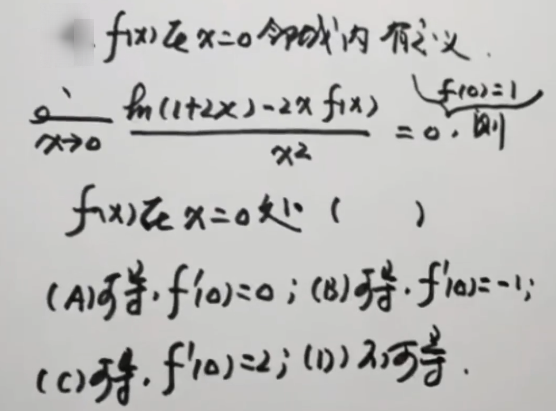 f(x)在x=0邻域内有定义.
lim x→0 (ln(1+2x)-2x f(x))/x² = 0. f(0)=1, 则
f(x)在x=0处( )
(A)可导. f'(0)=0; (B)可导. f'(0)=-1;
(C)可导. f'(0)=2; (D)不可导.